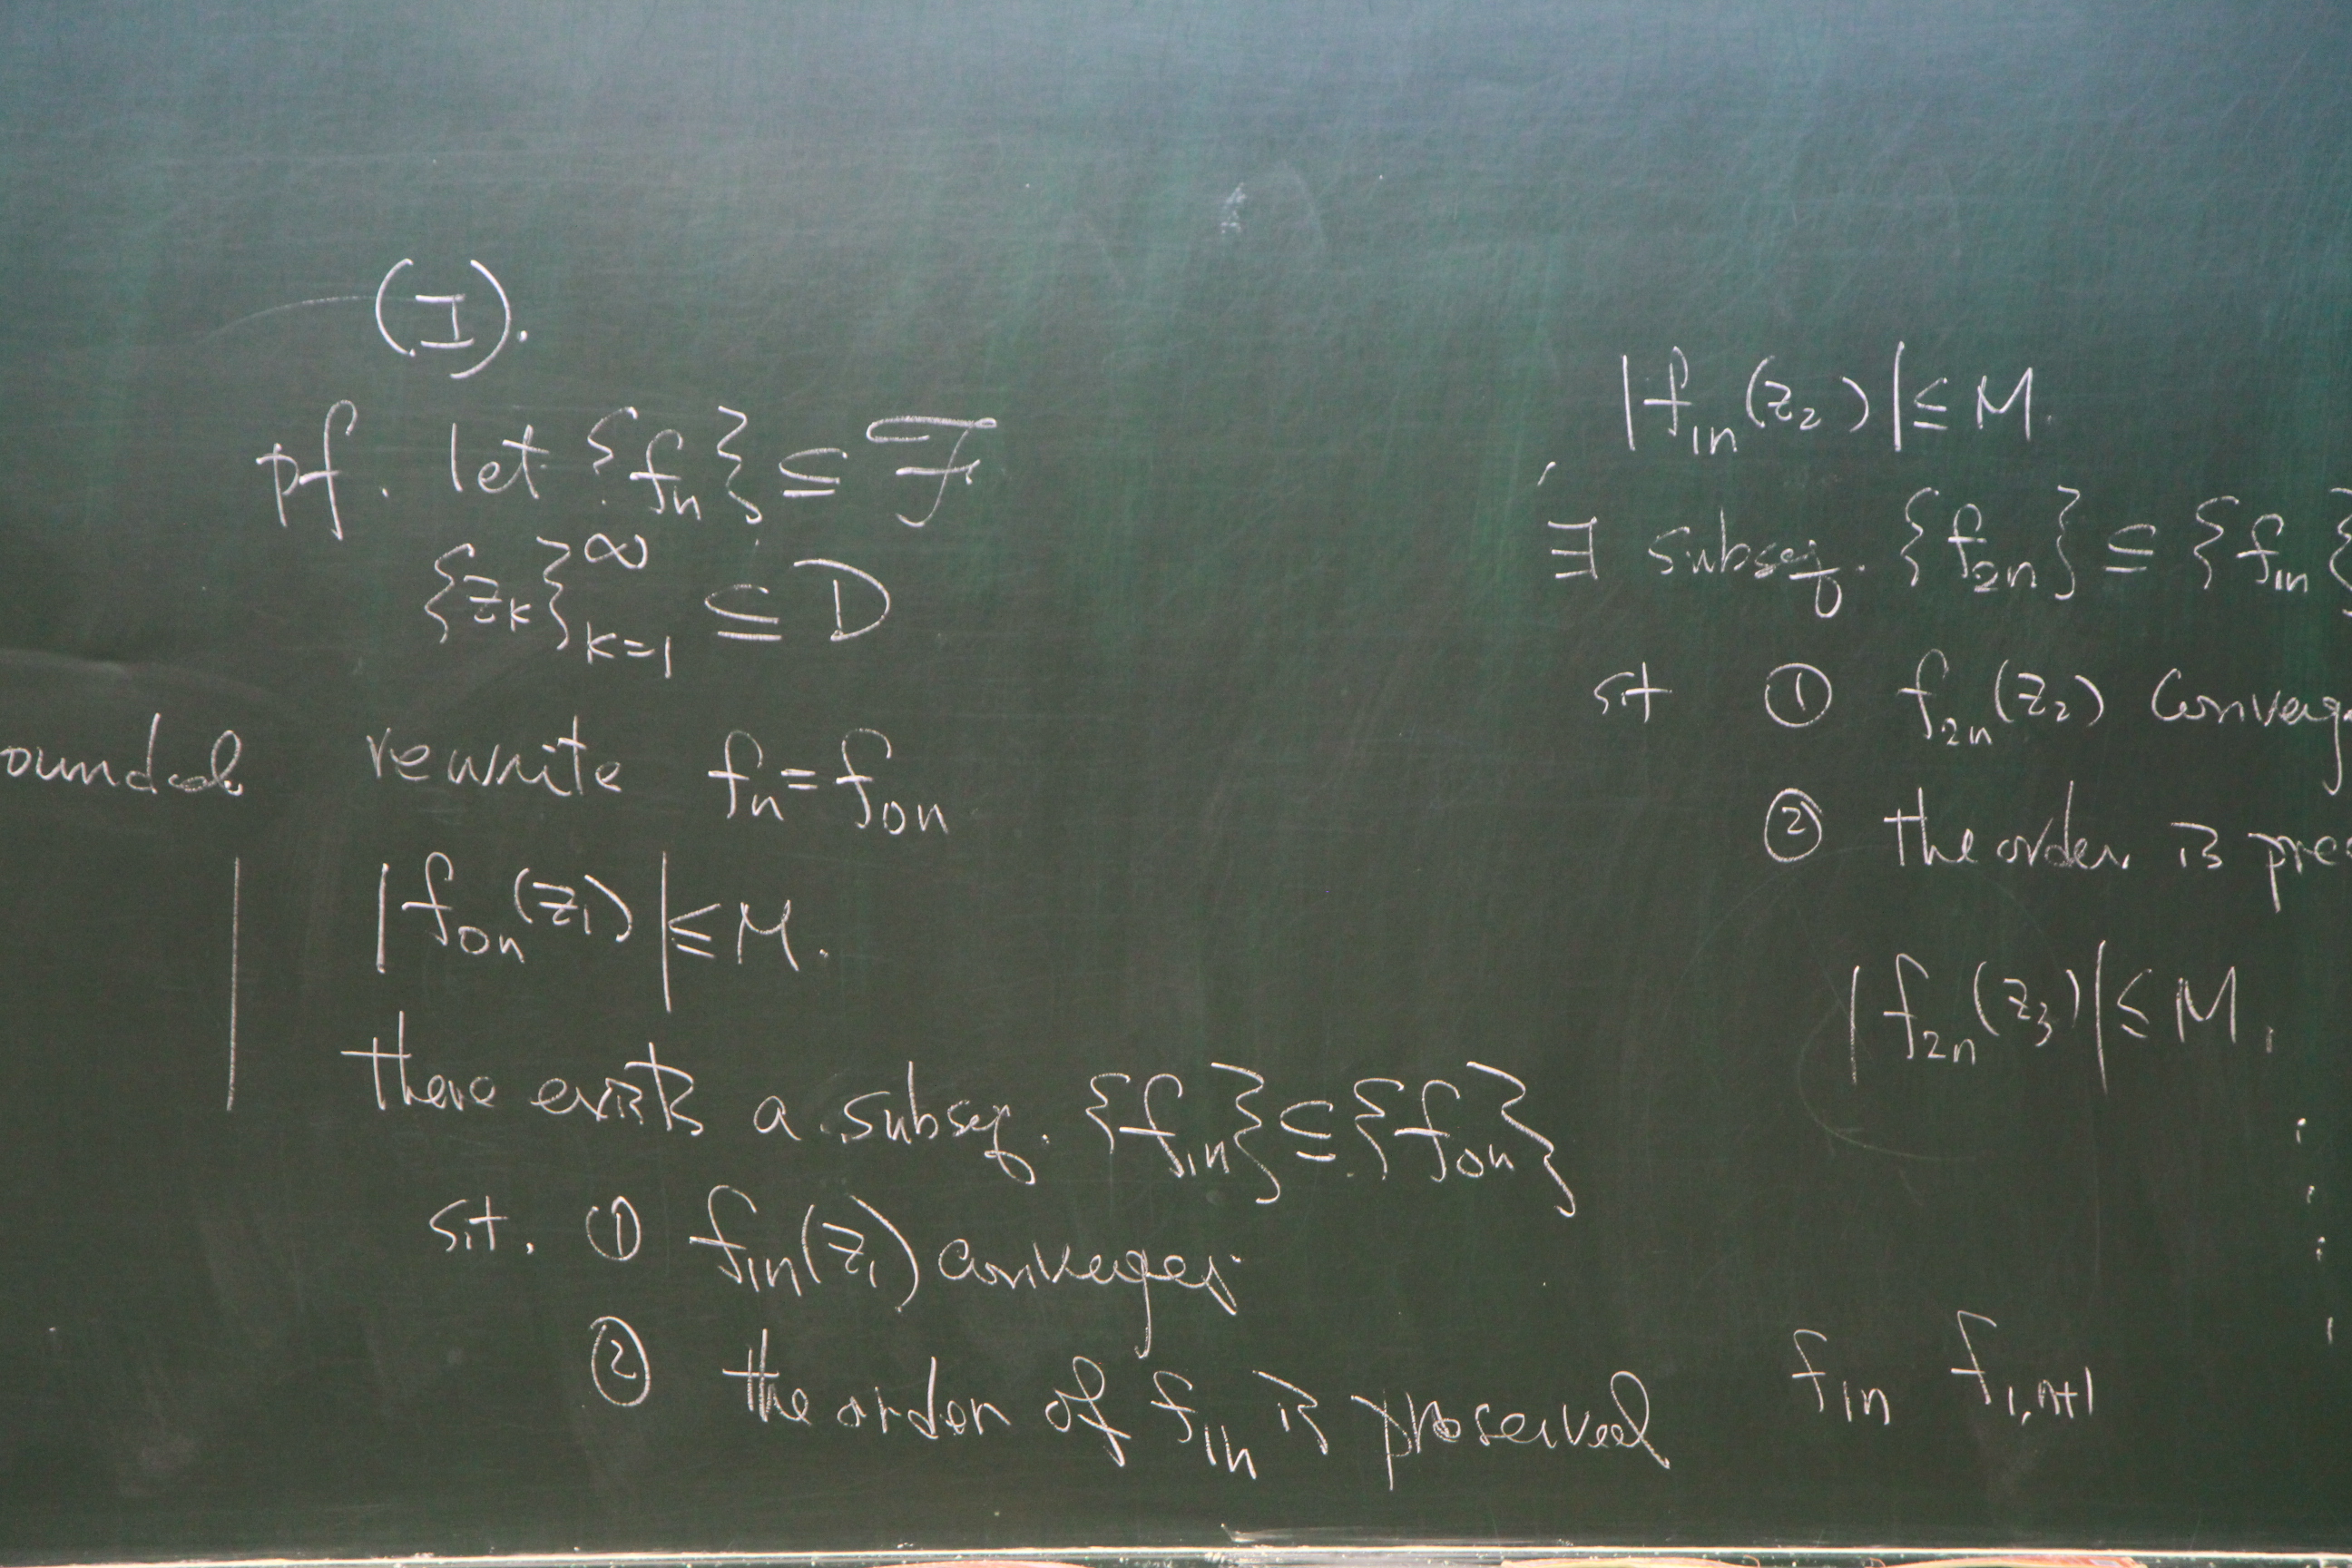 (I).
pf. let {fn} ⊆ ℱ
{z_k}_{k=1}^∞ ⊆ D
ounded
rewrite f_n = f_{0n}
|f_{0n}(z_1)| ≤ M.
there exists a subseq. {f_{1n}} ⊆ {f_{0n}}
s.t. ① f_{1n}(z_1) converges
② the order of f_{1n} is preserved
|f_{1n}(z_2)| ≤ M.
∃ subseq. {f_{2n}} ⊆ {f_{1n}
st ① f_{2n}(z_2) Converg
② the order is pre
|f_{2n}(z_3)| ≤ M.
f_{1n} f_{1,n+1}